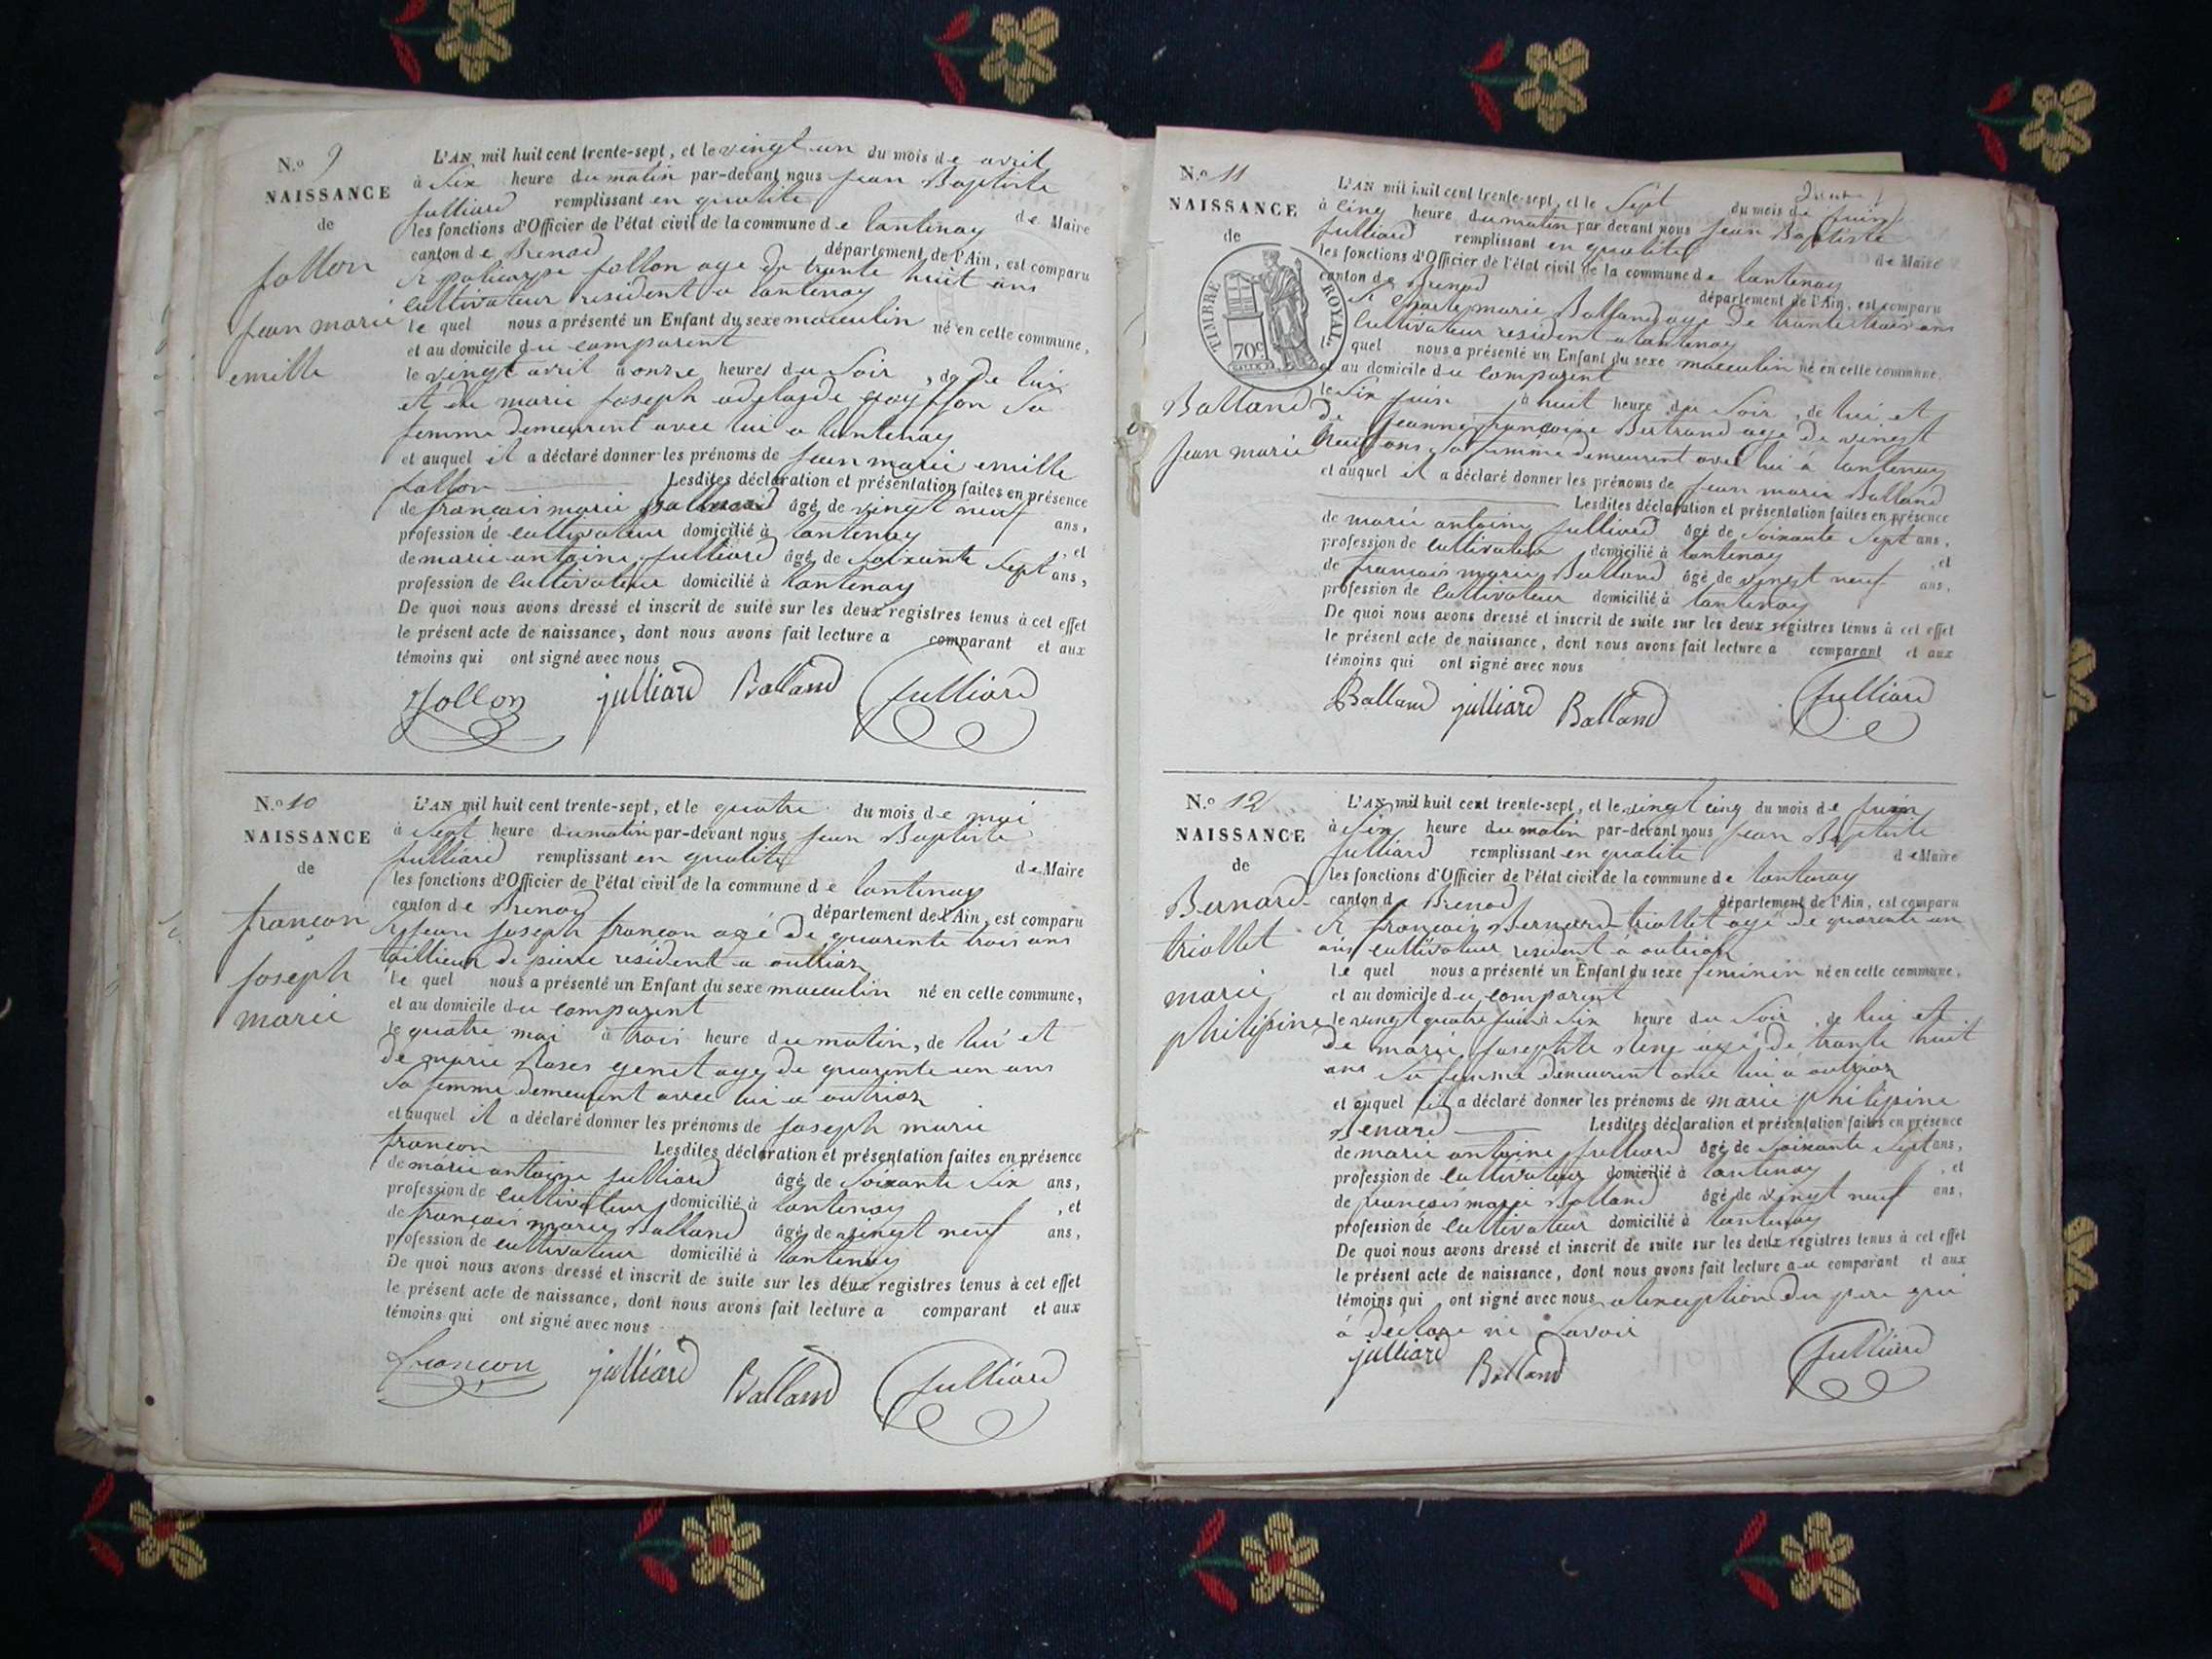 N.o 9
NAISSANCE
de
Jollon
Jean marie
emille
L'AN mil huit cent trente-sept, et le vingt un du mois de avril
à Six heure du matin par-devant nous Jean Baptiste
Julliard remplissant en qualité de Maire
les fonctions d'Officier de l'état civil de la commune de lantenay
canton de Brenod département de l'Ain, est comparu
Sr policarpe Jollon age de trante huit ans
cultivateur resident a lantenay
le quel nous a présenté un Enfant du sexe masculin né en cette commune,
et au domicile du comparent
le vingt avril a onze heures du Soir, de lui
et de marie Joseph adelayde Sa
femme demeurent avec lui a lantenay
et auquel il a déclaré donner les prénoms de Jean marie emille
Jollon Lesdites déclaration et présentation faites en présence
de françois marie balland âgé de vingt neuf ans,
profession de cultivateur domicilié à lantenay , et
de marie antoine Julliard âgé de Soixante Sept ans,
profession de cultivateur domicilié à lantenay
De quoi nous avons dressé et inscrit de suite sur les deux registres tenus à cet effet
le présent acte de naissance, dont nous avons fait lecture a comparant et aux
témoins qui ont signé avec nous
Jollon julliard Balland Julliard
N.o 10
NAISSANCE
de
françon
Joseph
marie
L'AN mil huit cent trente-sept, et le quatre du mois de mai
à Sept heure du matin par-devant nous Jean Baptiste
Julliard remplissant en qualité de Maire
les fonctions d'Officier de l'état civil de la commune de lantenay
canton de Brenod département de l'Ain, est comparu
Sr Jean Joseph françon agé de quarente trois ans
taillieur de pierre résident a outriaz
le quel nous a présenté un Enfant du sexe masculin né en cette commune,
et au domicile du comparent
le quatre mai à trois heure du matin, de lui et
de marie Roses genet age de quarente un ans
Sa femme demeurent avec lui a outriaz
et auquel il a déclaré donner les prénoms de Joseph marie
françon Lesdites déclaration et présentation faites en présence
de marie antoine Julliard âgé de Soixante Six ans,
profession de cultivateur domicilié à lantenay , et
de françois marie Balland âgé de vingt neuf ans,
profession de cultivateur domicilié à lantenay
De quoi nous avons dressé et inscrit de suite sur les deux registres tenus à cet effet
le présent acte de naissance, dont nous avons fait lecture a comparant et aux
témoins qui ont signé avec nous
françon julliard Balland Julliard
N.o 11
NAISSANCE
de
TIMBRE ROYAL
70c
Balland
Jean marie
L'AN mil huit cent trente-sept, et le Sept du mois de Juin
à cinq heure du matin par devant nous Jean Baptiste
Julliard remplissant en qualité de Maire
les fonctions d'Officier de l'état civil de la commune de lantenay
canton de Brenod département de l'Ain, est comparu
Sr marie Balland age de trante trois ans
cultivateur resident a lantenay
quel nous a présenté un Enfant du sexe masculin né en cette commune,
et au domicile du comparent
le Six Juin à huit heure du Soir, de lui et
de Jeanne françoise Bertrand age de vingt
huit ans Sa femme demeurent avec lui à lantenay
et auquel il a déclaré donner les prénoms de Jean marie Balland
Lesdites déclaration et présentation faites en présence
de marie antoine Julliard âgé de Soixante Sept ans,
profession de cultivateur domicilié à lantenay , et
de françois marie Balland âgé de vingt neuf ans,
profession de cultivateur domicilié à lantenay
De quoi nous avons dressé et inscrit de suite sur les deux registres tenus à cet effet
le présent acte de naissance, dont nous avons fait lecture a comparant et aux
témoins qui ont signé avec nous
Balland julliard Balland Julliard
N.o 12
NAISSANCE
de
Bernard
triollet
marie
philipine
L'AN mil huit cent trente-sept, et le vingt cinq du mois de Juin
à Six heure du matin par-devant nous Jean Baptiste
Julliard remplissant en qualité de Maire
les fonctions d'Officier de l'état civil de la commune de lantenay
canton de Brenod département de l'Ain, est comparu
Sr françois Bernard triollet agé de quarente un
ans cultivateur resident à outriaz
le quel nous a présenté un Enfant du sexe feminin né en cette commune,
et au domicile du comparent
le vingt quatre Juin à Six heure du Soir, de lui et
de marie Josephte agé de trante huit
ans Sa femme demeurent avec lui a outriaz
et auquel il a déclaré donner les prénoms de marie philipine
Benard Lesdites déclaration et présentation faites en présence
de marie antoine Julliard âgé de Soixante Sept ans,
profession de cultivateur domicilié à lantenay , et
de françois marie Balland âgé de vingt neuf ans,
profession de cultivateur domicilié à lantenay
De quoi nous avons dressé et inscrit de suite sur les deux registres tenus à cet effet
le présent acte de naissance, dont nous avons fait lecture au comparant et aux
témoins qui ont signé avec nous a lexception du pere qui
à declare ne Savoir
julliard Balland Julliard